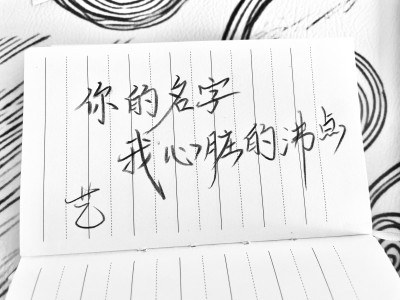 你的名字
我心脏的沸点
艺